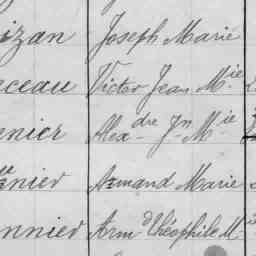 izan Joseph Marie
ceau Victor Jean Mie
nier Alexdre Jn Mie
nier Armand Marie
nnier Armd Théophile M.